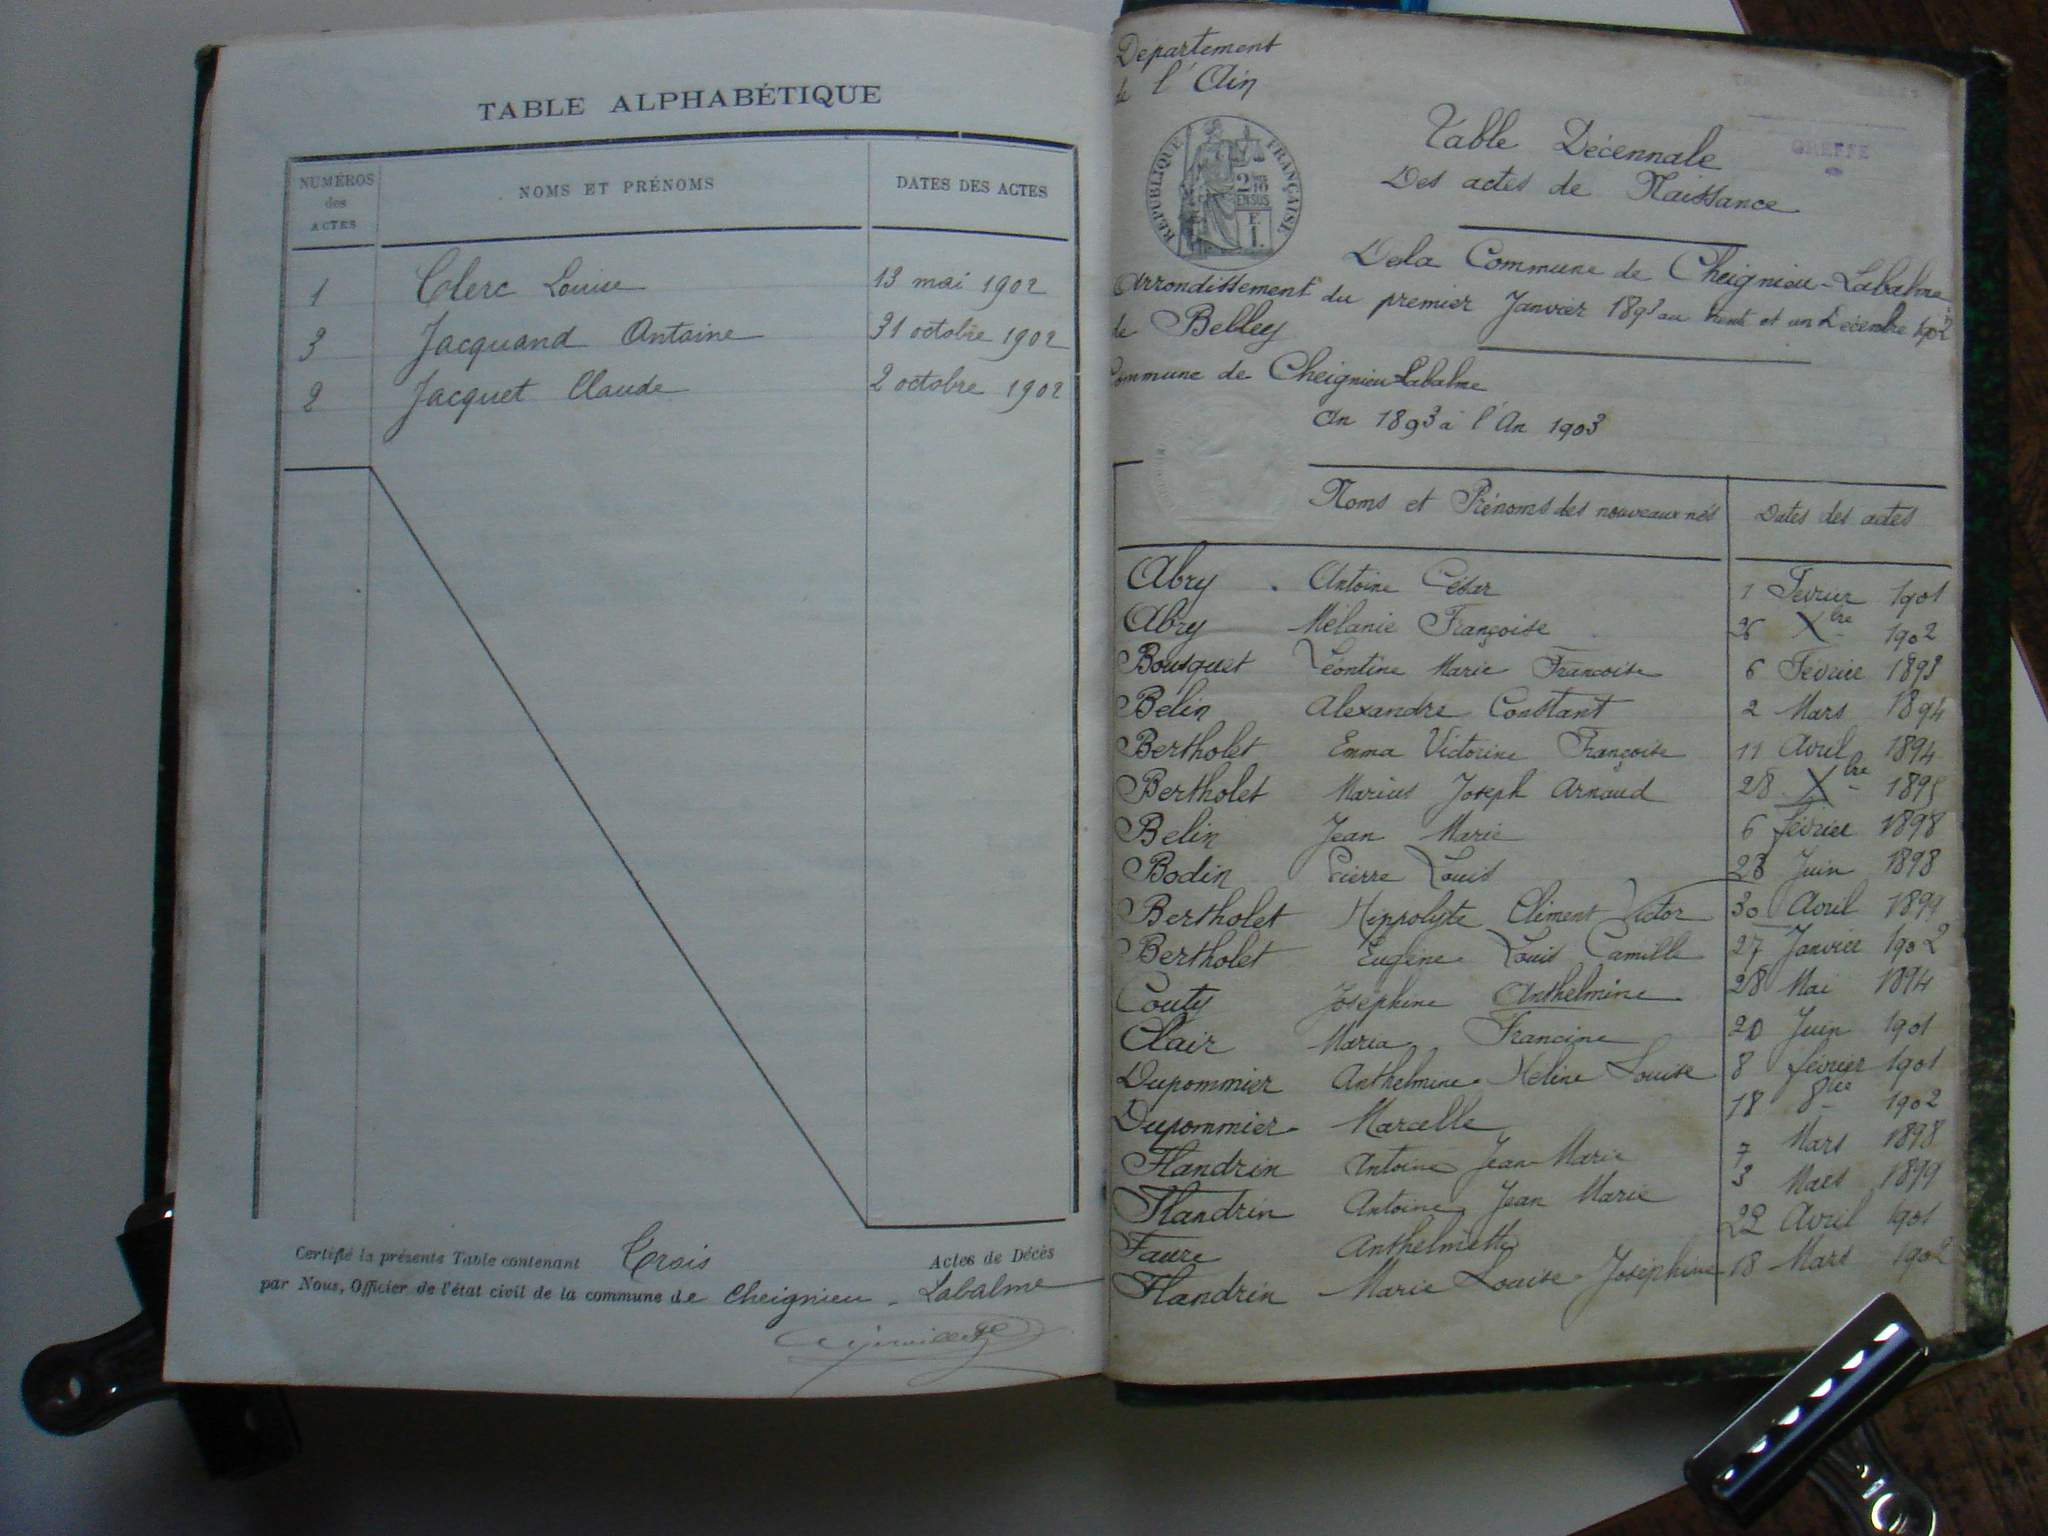 TABLE ALPHABÉTIQUE
NUMÉROS des ACTES NOMS ET PRÉNOMS DATES DES ACTES
1 Clerc Louise 13 mai 1902
3 Jacquand Antoine 31 octobre 1902
2 Jacquet Claude 2 octobre 1902
Certifié la présente Table contenant Trois Actes de Décès
par Nous, Officier de l'état civil de la commune de Cheignieu - Labalme
Département
de l'Ain
RÉPUBLIQUE FRANÇAISE
2/10 EN SUS
GREFFE
Table Décennale
Des actes de Naissance
De la Commune de Cheignieu-Labalme
Arrondissement du premier Janvier 1893 au trente et un Décembre 1902
de Belley
Commune de Cheignieu Labalme
An 1893 à l'An 1903
Noms et Prénoms des nouveaux nés Dates des actes
Abry Antoine César 1 Fevrier 1901
Abry Mélanie Françoise 26 Xbre 1902
Bousquet Léontine Marie Francoise 6 Fevrier 1893
Belin Alexandre Constant 2 Mars 1894
Bertholet Emma Victorine Françoise 11 Avril 1894
Bertholet Marius Joseph Arnaud 28 Xbre 1895
Belin Jean Marie 6 février 1898
Bodin Pierre Louis 23 Juin 1898
Bertholet Hippolyte Clément Victor 30 Avril 1899
Bertholet Eugène Louis Camille 27 Janvier 1902
Couty Joséphine Anthelmine 28 Mai 1894
Clair Maria Francine 20 Juin 1901
Dupommier Anthelmine Heline Louise 8 février 1901
Dupommier Marcelle 18 8bre 1902
Flandrin Antoine Jean Marie 7 Mars 1898
Flandrin Antoine Jean Marie 3 Mars 1899
Faure Anthelmette 22 Avril 1901
Flandrin Marie Louise Joséphine 18 Mars 1902